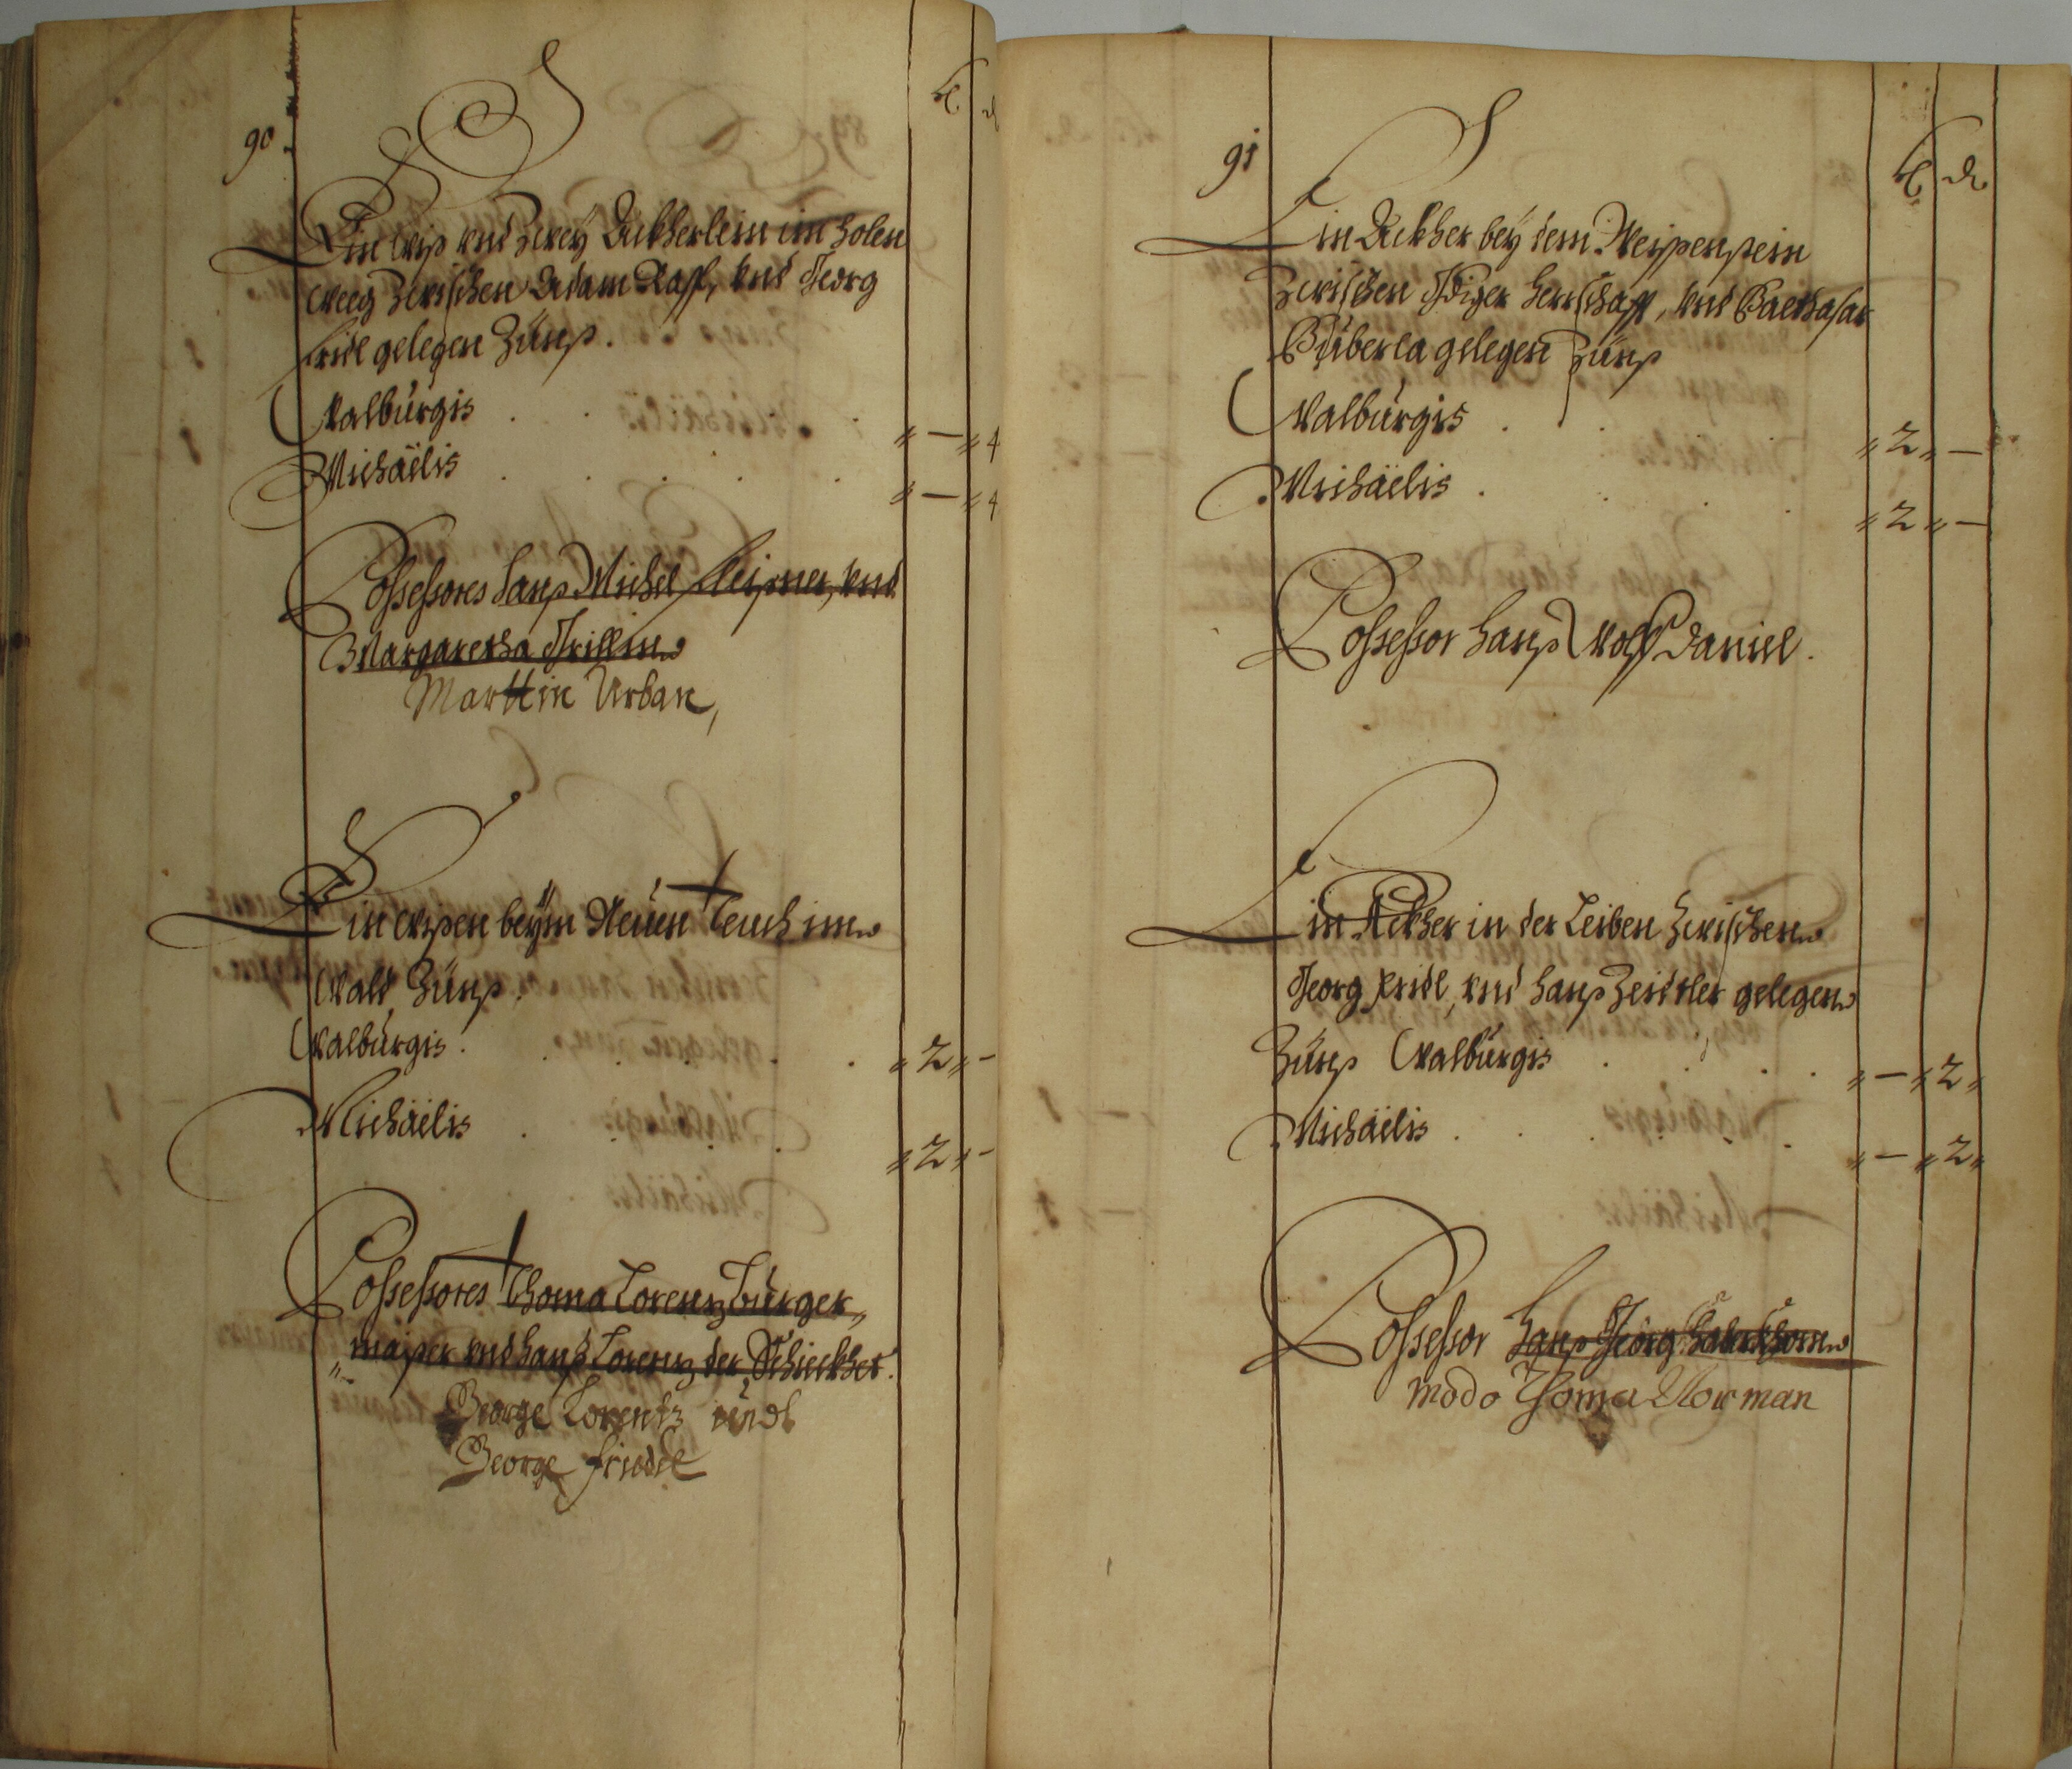 90
Ein Wiß vnd Zwey Äckherlein im holen
Weeg Zwischen Adam Rast, vnd Georg
Fridl gelegen Zünß.
Walburgis . . . . " — " 4
Michäelis . . . . " — " 4
Possessores Hanß Michel Meißner, vnd
Margaretha Grillin
Marttin Urban,
Ein Wißen beÿm Neuen Teuch im
Wald, Zünß.
Walburgis . . . . " 2 " —
Michäelis . . . . " 2 " —
Possessores Thoma Lorenz Burger„
„maister vnd Hanß Lorenz der Schickher.
George Lorentz undt
George Friedel
91
Ein Ackher beÿ dem Weissenstein
Zwischen Gdiger Herrschafft, vnd Balthasar
Büberla gelegen Zünß
Walburgis . . . " 2 " —
Michäelis . . . . " 2 " —
Possessor Hanß Wolff Daniel.
Ein Ackher in der Leiben Zwischen
Georg Fridl, vnd Hanß Zeidtler gelegen
Zünß Walburgis . . . . " — " 2 "
Michäelis . . . . " — " 2 "
Possessor Hanß Georg
modo Thoma Norman